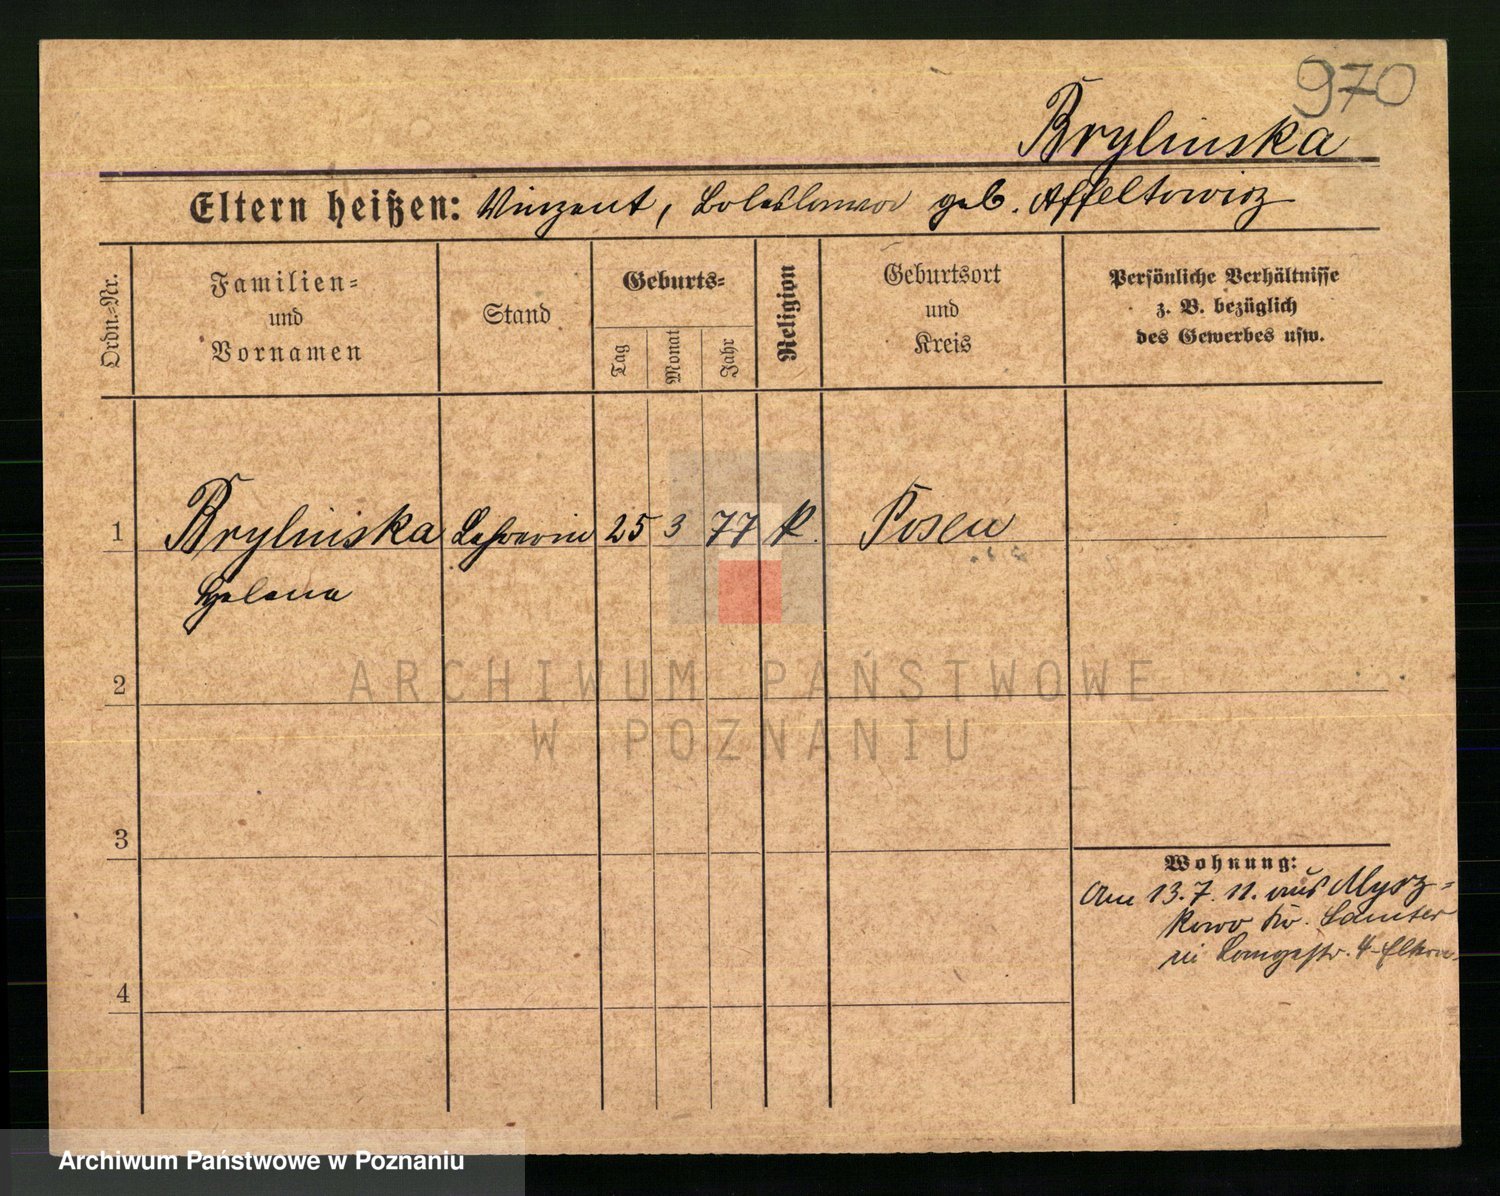 970
Brylinska
Eltern heißen: Vinzent, Boleslawa geb. Affeltowicz
Ordn.-Nr.
Familien-
und
Vornamen
Stand
Geburts-
Tag
Monat
Jahr
Religion
Geburtsort
und
Kreis
Persönliche Verhältnisse
z. B. bezüglich
des Gewerbes usw.
1 Brylinska Lehrerin 25 3 77 k. Posen
Helena
2
3
4
Wohnung:
Am 13.7.11. aus Mysz-
kowo Kr. Samter
in Langestr. 4 - Eltern.
ARCHIWUM PAŃSTWOWE
W POZNANIU
Archiwum Państwowe w Poznaniu